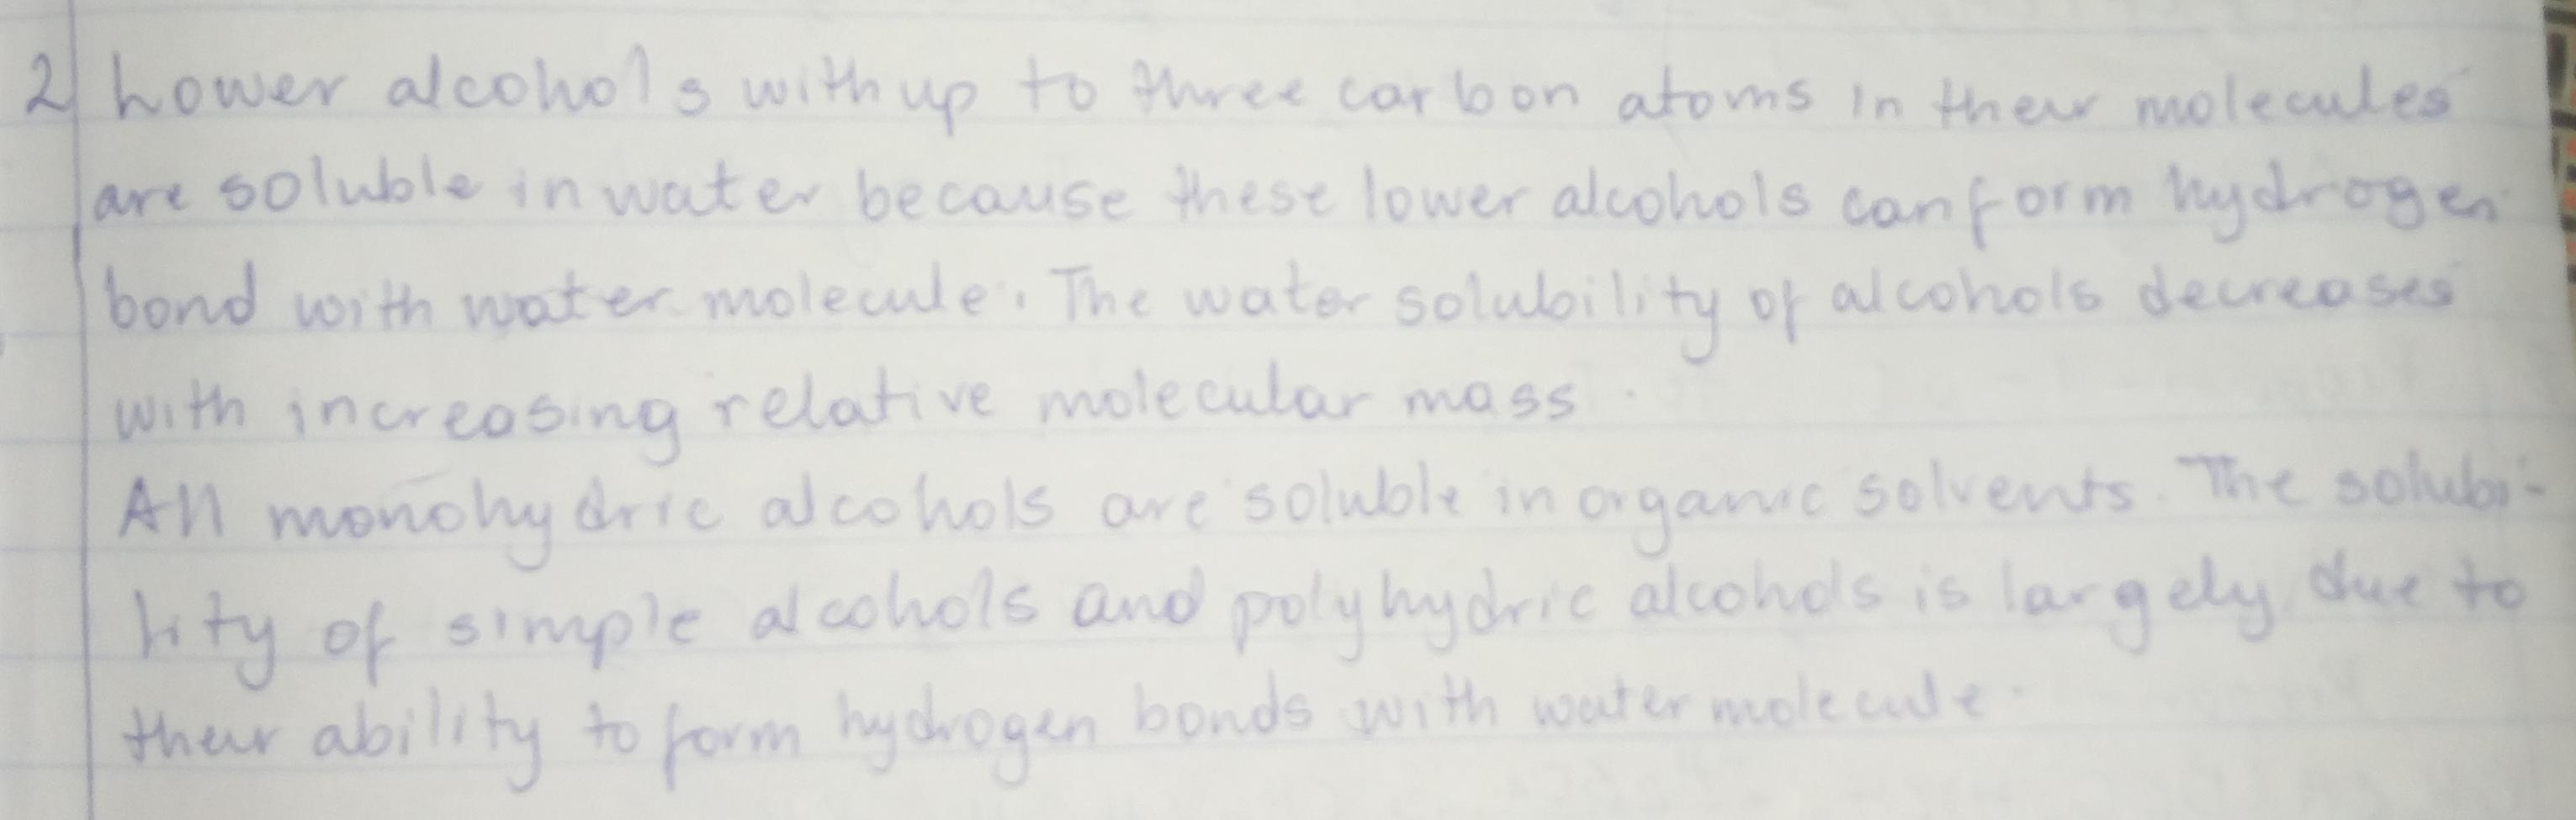 2 Lower alcohols with up to three carbon atoms in their molecules
are soluble in water because these lower alcohols can form hydrogen
bond with water molecule. The water solubility of alcohols decreases
with increasing relative molecular mass.
All monohydric alcohols are soluble in organic solvents. The solubi-
lity of simple alcohols and polyhydric alcohols is largely due to
their ability to form hydrogen bonds with water molecule.